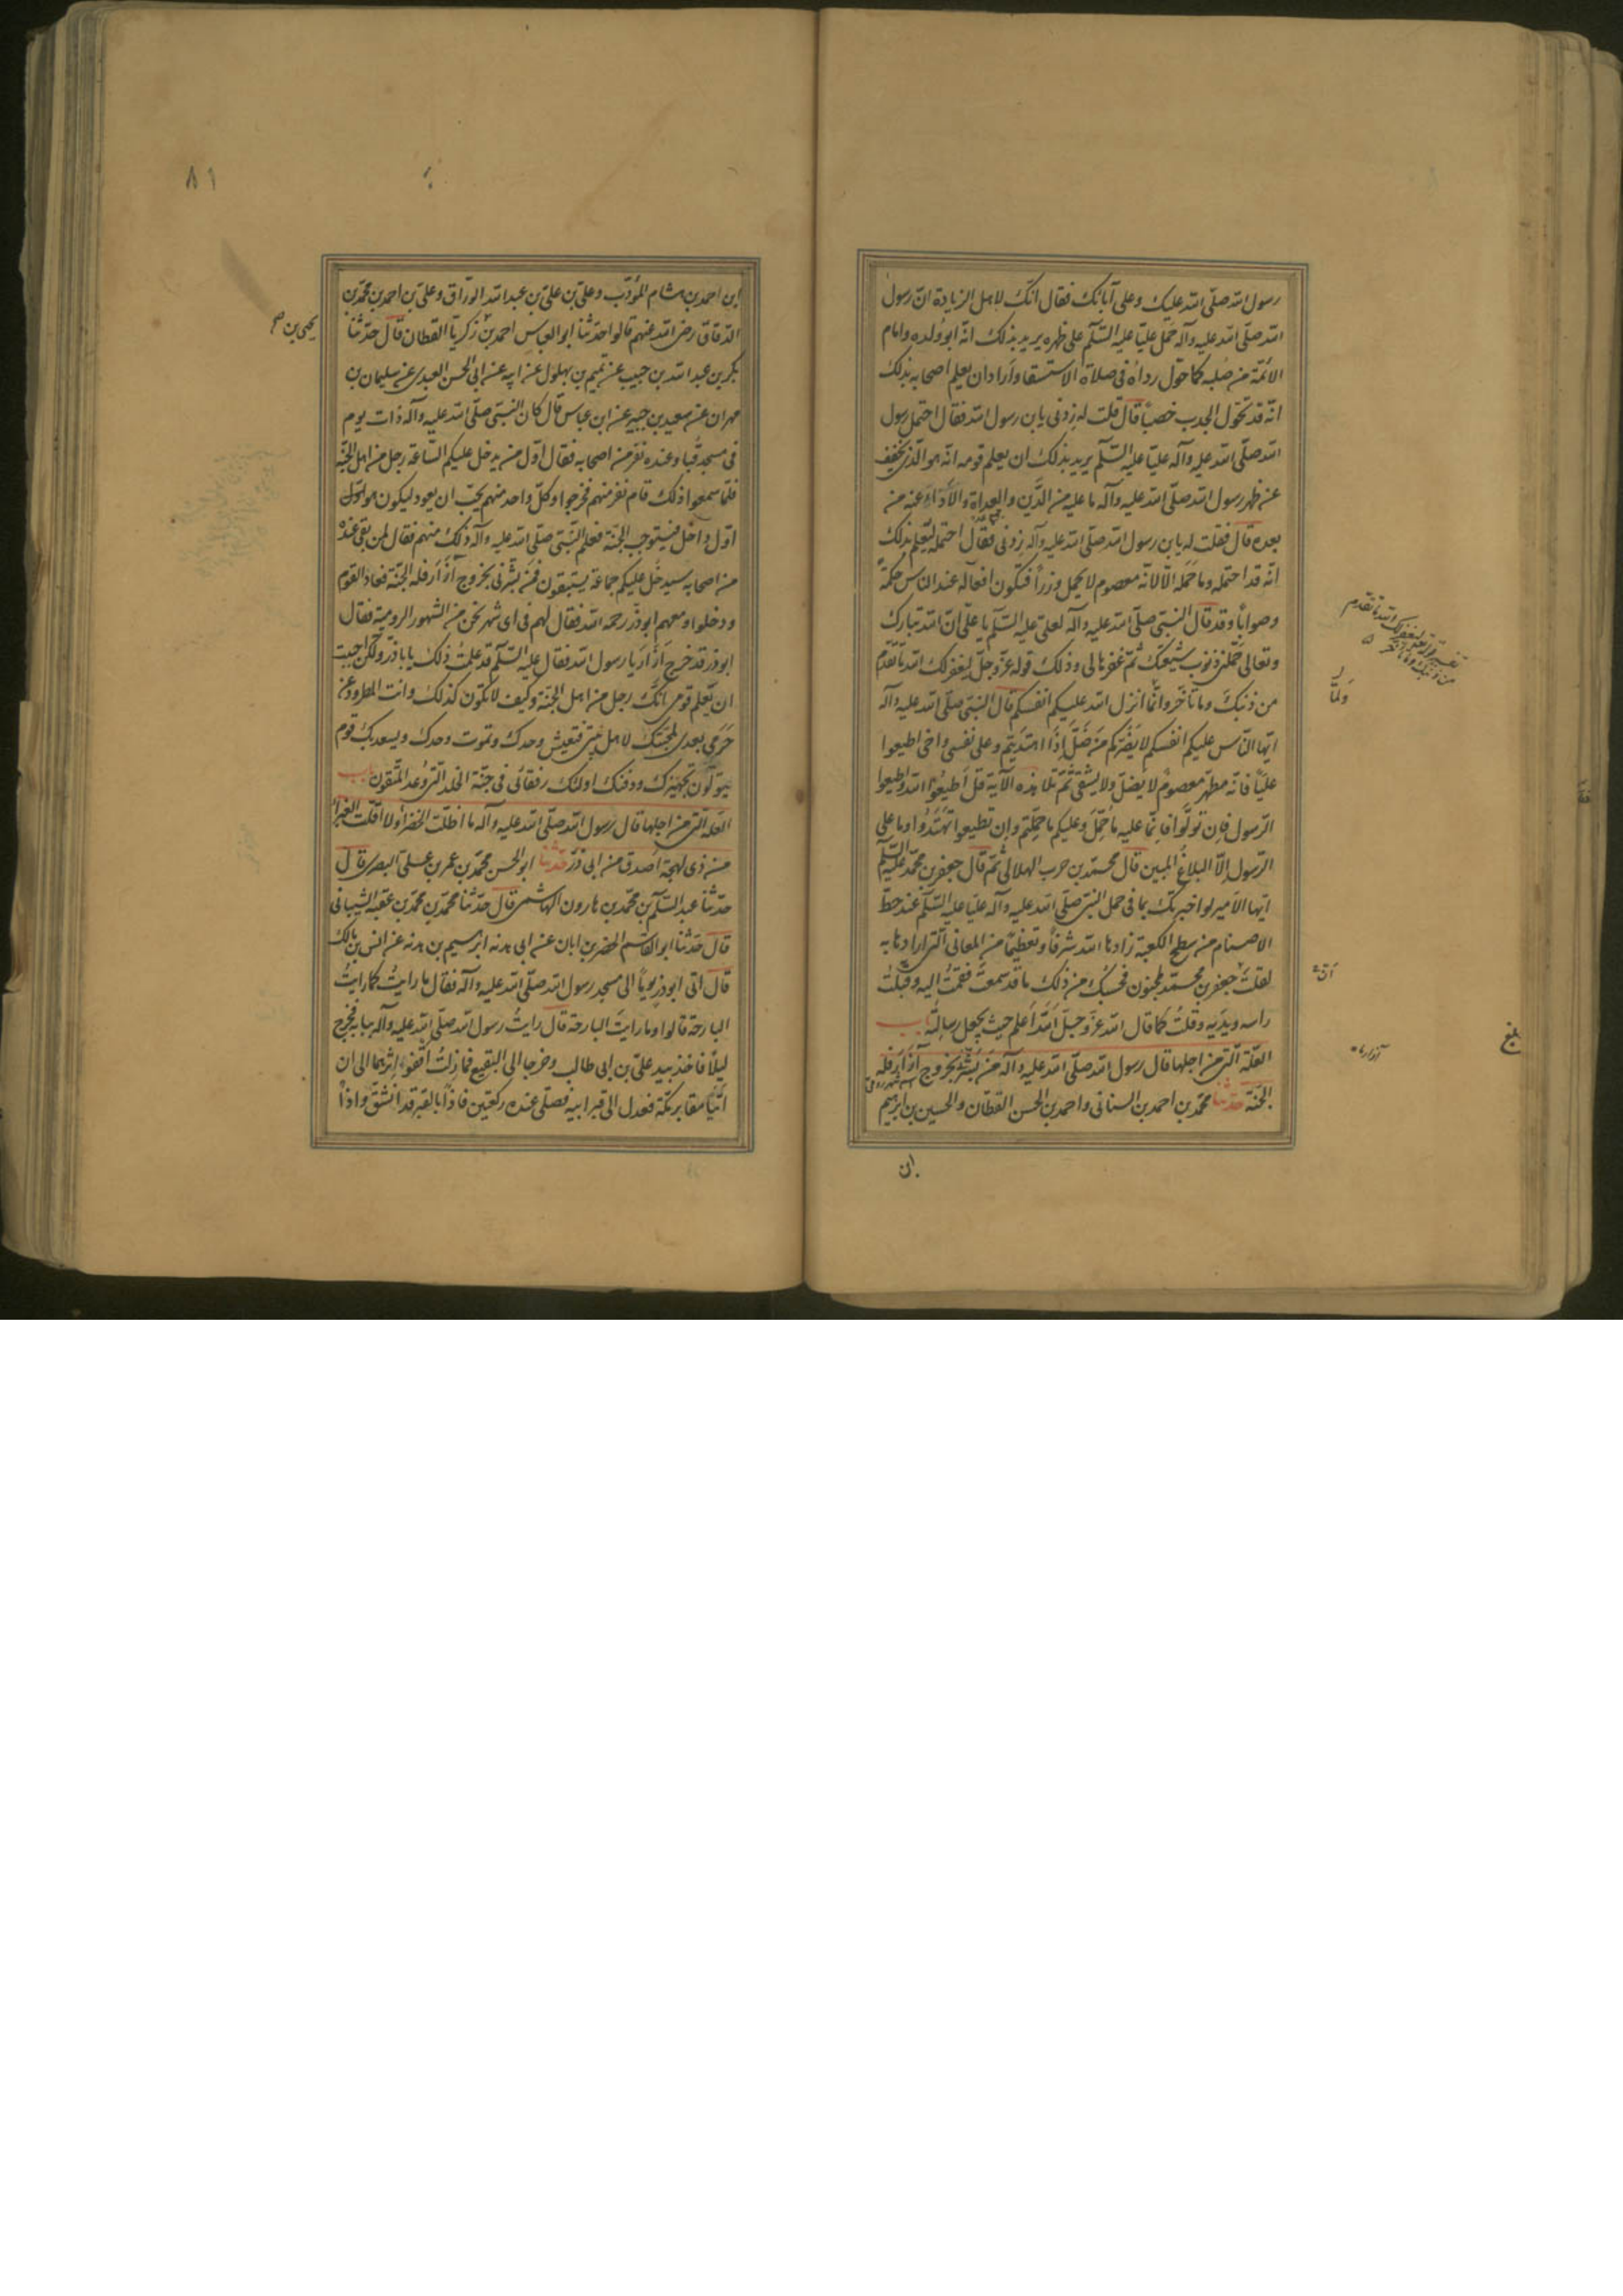 رسول الله صلّى الله عليك وعلى آبائك فقال انّك لاهل الزيادة انّ رسول
الله صلّى الله عليه وآله حمل عليّا عليه السّلم على ظهره يريد بذلك انّه ابو ولده وامام
الائمّة من صلبه كما حوّل رداءه فى صلاة الاستسقا واراد ان يعلم اصحابه بذلك
انّه قد تحوّل الجدب خصبًا قال قلت له زدنى يابن رسول الله فقال احتمل رسول
الله صلّى الله عليه وآله عليّا عليه السّلم يريد بذلك ان يعلم قومه انّه هو الّذى يخفّف
عن ظهر رسول الله صلّى الله عليه وآله ما عليه من الدَّين والعداة والأداء عنه من
بعده قال فقلت له يابن رسول الله صلّى الله عليه وآله زدنى فقال احتمله ليعلم بذلك
انّه قد احتمله وما حَمَله الّا لانّه معصوم لا يحمل وزرًا فتكون افعاله عند الناس حكمة
وصوابًا وقد قال النبىّ صلّى الله عليه وآله لعلى عليه السّلم يا علىّ انّ الله تبارك
وتعالى حمّلنى ذنوب شيعتك ثمّ غفرها لى وذلك قوله عزّ وجلّ ليغفر لك الله ما تقدّم
من ذنبك وما تاخّر وانّما انزل الله عليكم انفسكم قال النبىّ صلّى الله عليه وآله
ايّها النّاس عليكم انفسكم لا يضرّكم من ضلّ اذا اهتديتم وعلى نفسى واخى اطيعوا
عليّا فانّه مطهّر معصوم لا يضلّ ولا يشقى ثمّ تلا هذه الآية قل اطيعوا الله واطيعوا
الرّسول فان تولّوا فانّما عليه ما حُمّل وعليكم ما حمّلتم وان تطيعوا تهتدوا وما على
الرّسول الّا البلاغ المبين قال محمّد بن حرب الهلالى ثمّ قال جعفر بن محمّد عليه السّلم
ايّها الامير لو اخبرتك بما فى حمل النبىّ صلّى الله عليه وآله عليّا عليه السّلم عند حطّ
الاصنام من سطح الكعبة زادها الله شرفًا وتعظيمًا من المعانى الّتى ارادها به
لقلت جعفر بن محمّد لمجنون فحسبك من ذلك ما قد سمعت فقمت اليه وقبلت
راسه ويديه وقلت كما قال الله عزّ وجلّ الله اعلم حيث يجعل رسالته باب
العلّة الّتى من اجلها قال رسول الله صلّى الله عليه وآله من بشّرنى بخروج آزار فله
الجنّة حدّثنا محمّد بن احمد بن السنانى واحمد بن الحسن القطّان والحسين بن ابرهيم
ابن
تفسير قوله تعالى ليغفر لك الله ما تقدم
من ذنبك وما تاخر
ولمّا
بلغ
٨١
ابن احمد بن هشام المؤدّب وعلىّ بن عبد الله الورّاق وعلىّ بن احمد بن محمّد بن
الدّقاق رضى الله عنهم قالوا حدّثنا ابو العباس احمد بن زكريّا القطان قال حدّثنا
يحيى بن
بكر بن عبد الله بن حبيب عن تميم بن بهلول عن ابيه عن ابى الحسن العبدى عن سليمان بن
مهران عن سعيد بن جبير عن ابن عباس قال كان النبىّ صلّى الله عليه وآله ذات يوم
فى مسجد قبا وعنده نفر من اصحابه فقال اوّل من يدخل عليكم السّاعة رجل من اهل الجنّة
فلمّا سمعوا ذلك قام نفر منهم فخرجوا وكلّ واحد منهم يحبّ ان يعود ليكون هو اوّل
اوّل داخل فيستوجب الجنّة فعلم النّبىّ صلّى الله عليه وآله ذلك منهم فقال لمن بقى عنده
من اصحابه سيدخل عليكم جماعة يستبقون فمن بشّرنى بخروج آزار فله الجنّة فعاد القوم
ودخلوا ومعهم ابو ذرّ رحمه الله فقال لهم فى اى شهر نحن من الشهور الروميّة فقال
ابو ذر قد خرج آزار يا رسول الله فقال عليه السّلم قد علمت ذلك يا باذر ولكن احببت
ان يعلم قومى انّك رجل من اهل الجنّة وكيف لا تكون كذلك وانت المطرود عن
حرمى بعدى لمحبّتك لاهل بيتى فتعيش وحدك وتموت وحدك ويسعد بك قوم
يتولّون تجهيزك ودفنك اولئك رفقائى فى جنّة الخلد الّتى وعد المتّقون باب
العلّة الّتى من اجلها قال رسول الله صلّى الله عليه وآله ما اظلّت الخضراء ولا اقلّت الغبراء
من ذى لهجة اصدق من ابى ذرّ حدّثنا ابو الحسن محمّد بن عمر بن على البصرى قال
حدّثنا عبد السّلم بن محمّد بن هارون الهاشمى قال حدّثنا محمّد بن محمّد بن عقبة الشيبانى
قال حدّثنا ابو القاسم الخضر بن ابان عن ابى هدبه ابرهيم بن هدبه عن انس بن مالك
قال اتى ابو ذرّ يومًا الى مسجد رسول الله صلّى الله عليه وآله فقال ما رايت كما رايت
البارحة قالوا وما رايت البارحة قال رايت رسول الله صلّى الله عليه وآله ببابه فخرج
ليلًا فاخذ بيد علىّ بن ابى طالب وخرجا الى البقيع فما زلت اقفو اثرهما الى ان
اتيا مقابر مكّة فعدل الى قبر ابيه فصلّى عنده ركعتين فاذا بالقبر قد انشقّ واذا